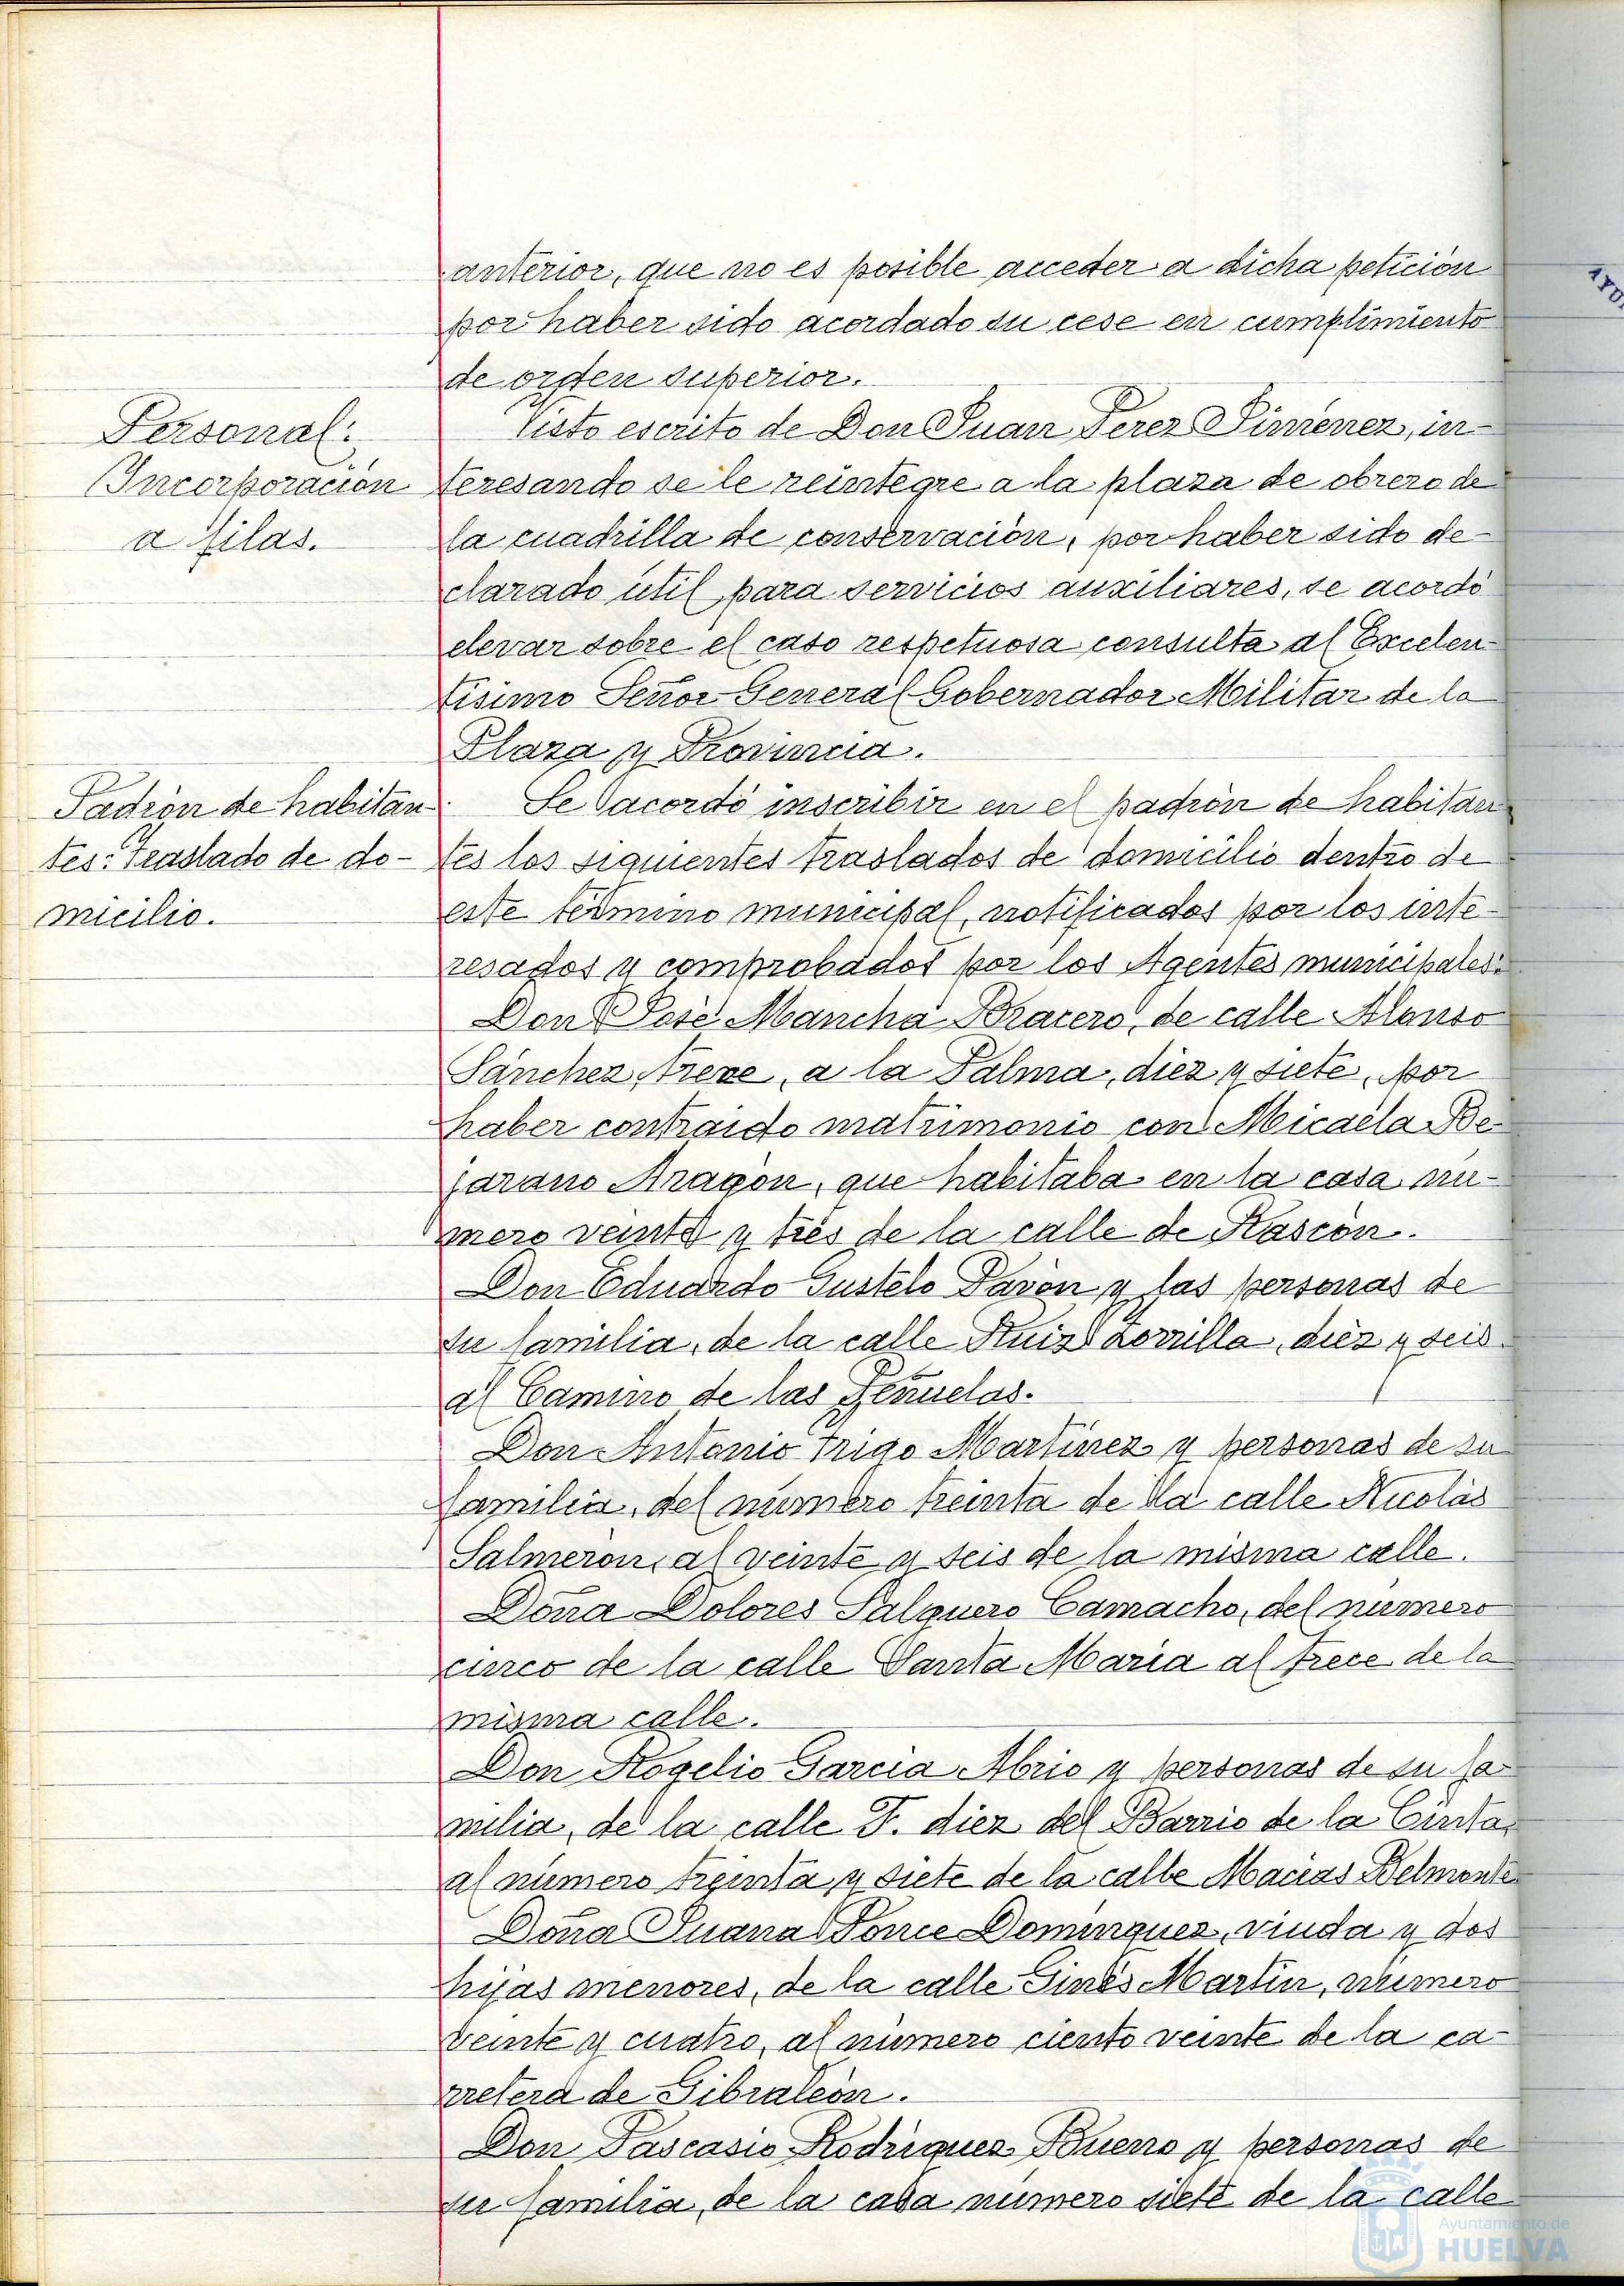 anterior, que no es posible acceder a dicha petición
por haber sido acordado su cese en cumplimiento
de orden superior.
Personal:
Incorporación
a filas.
Visto escrito de Don Juan Perez Jimenez, in-
teresando se le reintegre a la plaza de obrero de
la cuadrilla de conservación, por haber sido de-
clarado útil para servicios auxiliares, se acordó
elevar sobre el caso respetuosa consulta al Excelen-
tisimo Señor General Gobernador Militar de la
Plaza y Provincia.
Padrón de habitan-
tes: Traslado de do-
micilio.
Se acordó inscribir en el padrón de habitan-
tes los siguientes traslados de domicilio dentro de
este término municipal, notificados por los inte-
resados y comprobados por los Agentes municipales:
Don José Mancha Bracero, de calle Alonso
Sánchez, trece, a la Palma, diez y siete, por
haber contraido matrimonio con Micaela Be-
jarano Aragón, que habitaba en la casa nú-
mero veinte y tres de la calle de Rascón.
Don Eduardo Gustelo Pavón y las personas de
su familia, de la calle Ruiz Zorrilla, diez y seis
al Camino de las Peñuelas.
Don Antonio Trigo Martínez y personas de su
familia, del número treinta de la calle Nicolás
Salmerón, al veinte y seis de la misma calle.
Doña Dolores Salguero Camacho, del número
cinco de la calle Santa Maria al trece de la
misma calle.
Don Rogelio Garcia Abrio y personas de su fa-
milia, de la calle F. diez del Barrio de la Cinta,
al número treinta y siete de la calle Macias Belmonte
Doña Juana Ponce Dominguez, viuda y dos
hijas menores, de la calle Ginés Martín, número
veinte y cuatro, al número ciento veinte de la ca-
rretera de Gibraleón.
Don Pascasio Rodriguez Bueno y personas de
su familia, de la casa número siete de la calle
Ayuntamiento de
HUELVA